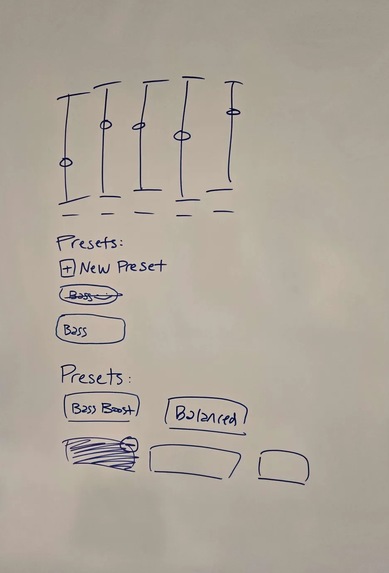 Presets:
+ New Preset
Bass
Bass
Presets:
Bass Boost
Balanced